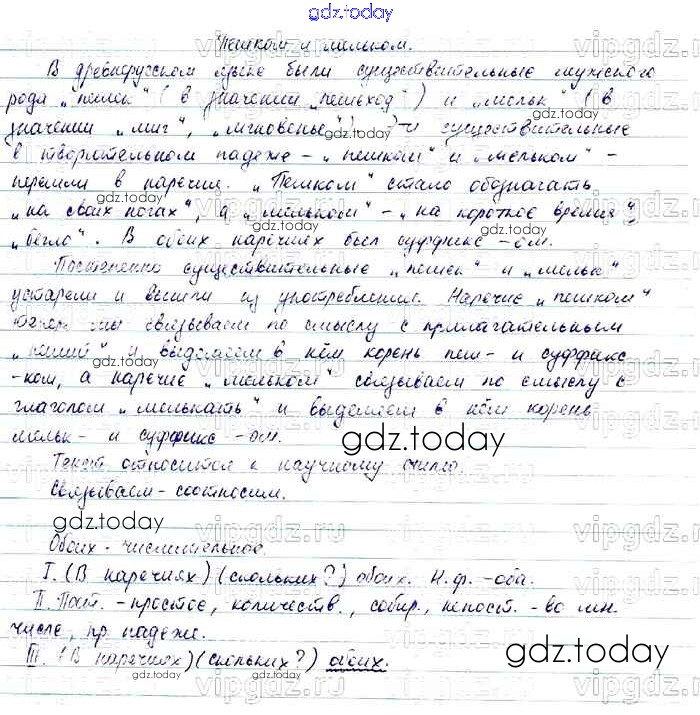 gdz.today
"Пешком и мельком.
В древнерусском языке были существительные мужского
рода "пешек" (в значении "пешеход") и "мельк" (в
значении "миг", "мгновенье") и существительные
в творительном падеже - "пешком" и "мельком" -
перешли в наречия. "Пешком" стало обозначать
"на своих ногах", а "мельком" - "на короткое время",
"бегло". В обоих наречиях был суффикс -ом.
Постепенно существительные "пешек" и "мельк"
устарели и вышли из употребления. Наречие "пешком"
теперь мы связываем по смыслу с прилагательным
"пеший" и выделяем в нём корень пеш- и суффикс
-ком, а наречие "мельком" связываем по смыслу с
глаголом "мелькать" и выделяем в нём корень
мельк- и суффикс -ом.
Текст относится к научному стилю.
Связываем - соотносим.
Обоих - числительное.
I. (В наречиях) (скольких?) обоих. Н.ф. - оба.
II. Пост. - простое, количеств., собир., непост. - во мн.
числе, пр. падеже.
III. (В наречиях) (скольких?) обоих.
gdz.today
gdz.today
gdz.today
gdz.today
gdz.today
gdz.today
gdz.today
gdz.today
gdz.today